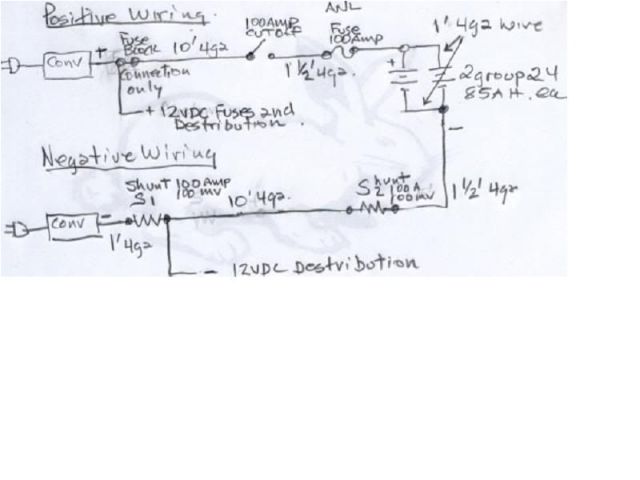 Positive Wiring.
100AMP
CUTOFF
ANL
Fuse
100Amp
1' 4ga wire
Fuse
Block
10' 4ga
+
Conv
Connection
only
1 1/2' 4ga.
+
2 group 24
85AH. ea
+ 12VDC Fuses and
Destribution.
-
Negative Wiring
Shunt 100 AMP
100 mv
S1
10' 4ga.
Shunt
S2 100 A
100 mv
1 1/2' 4ga
Conv
-
1' 4ga
- 12VDC Destribution